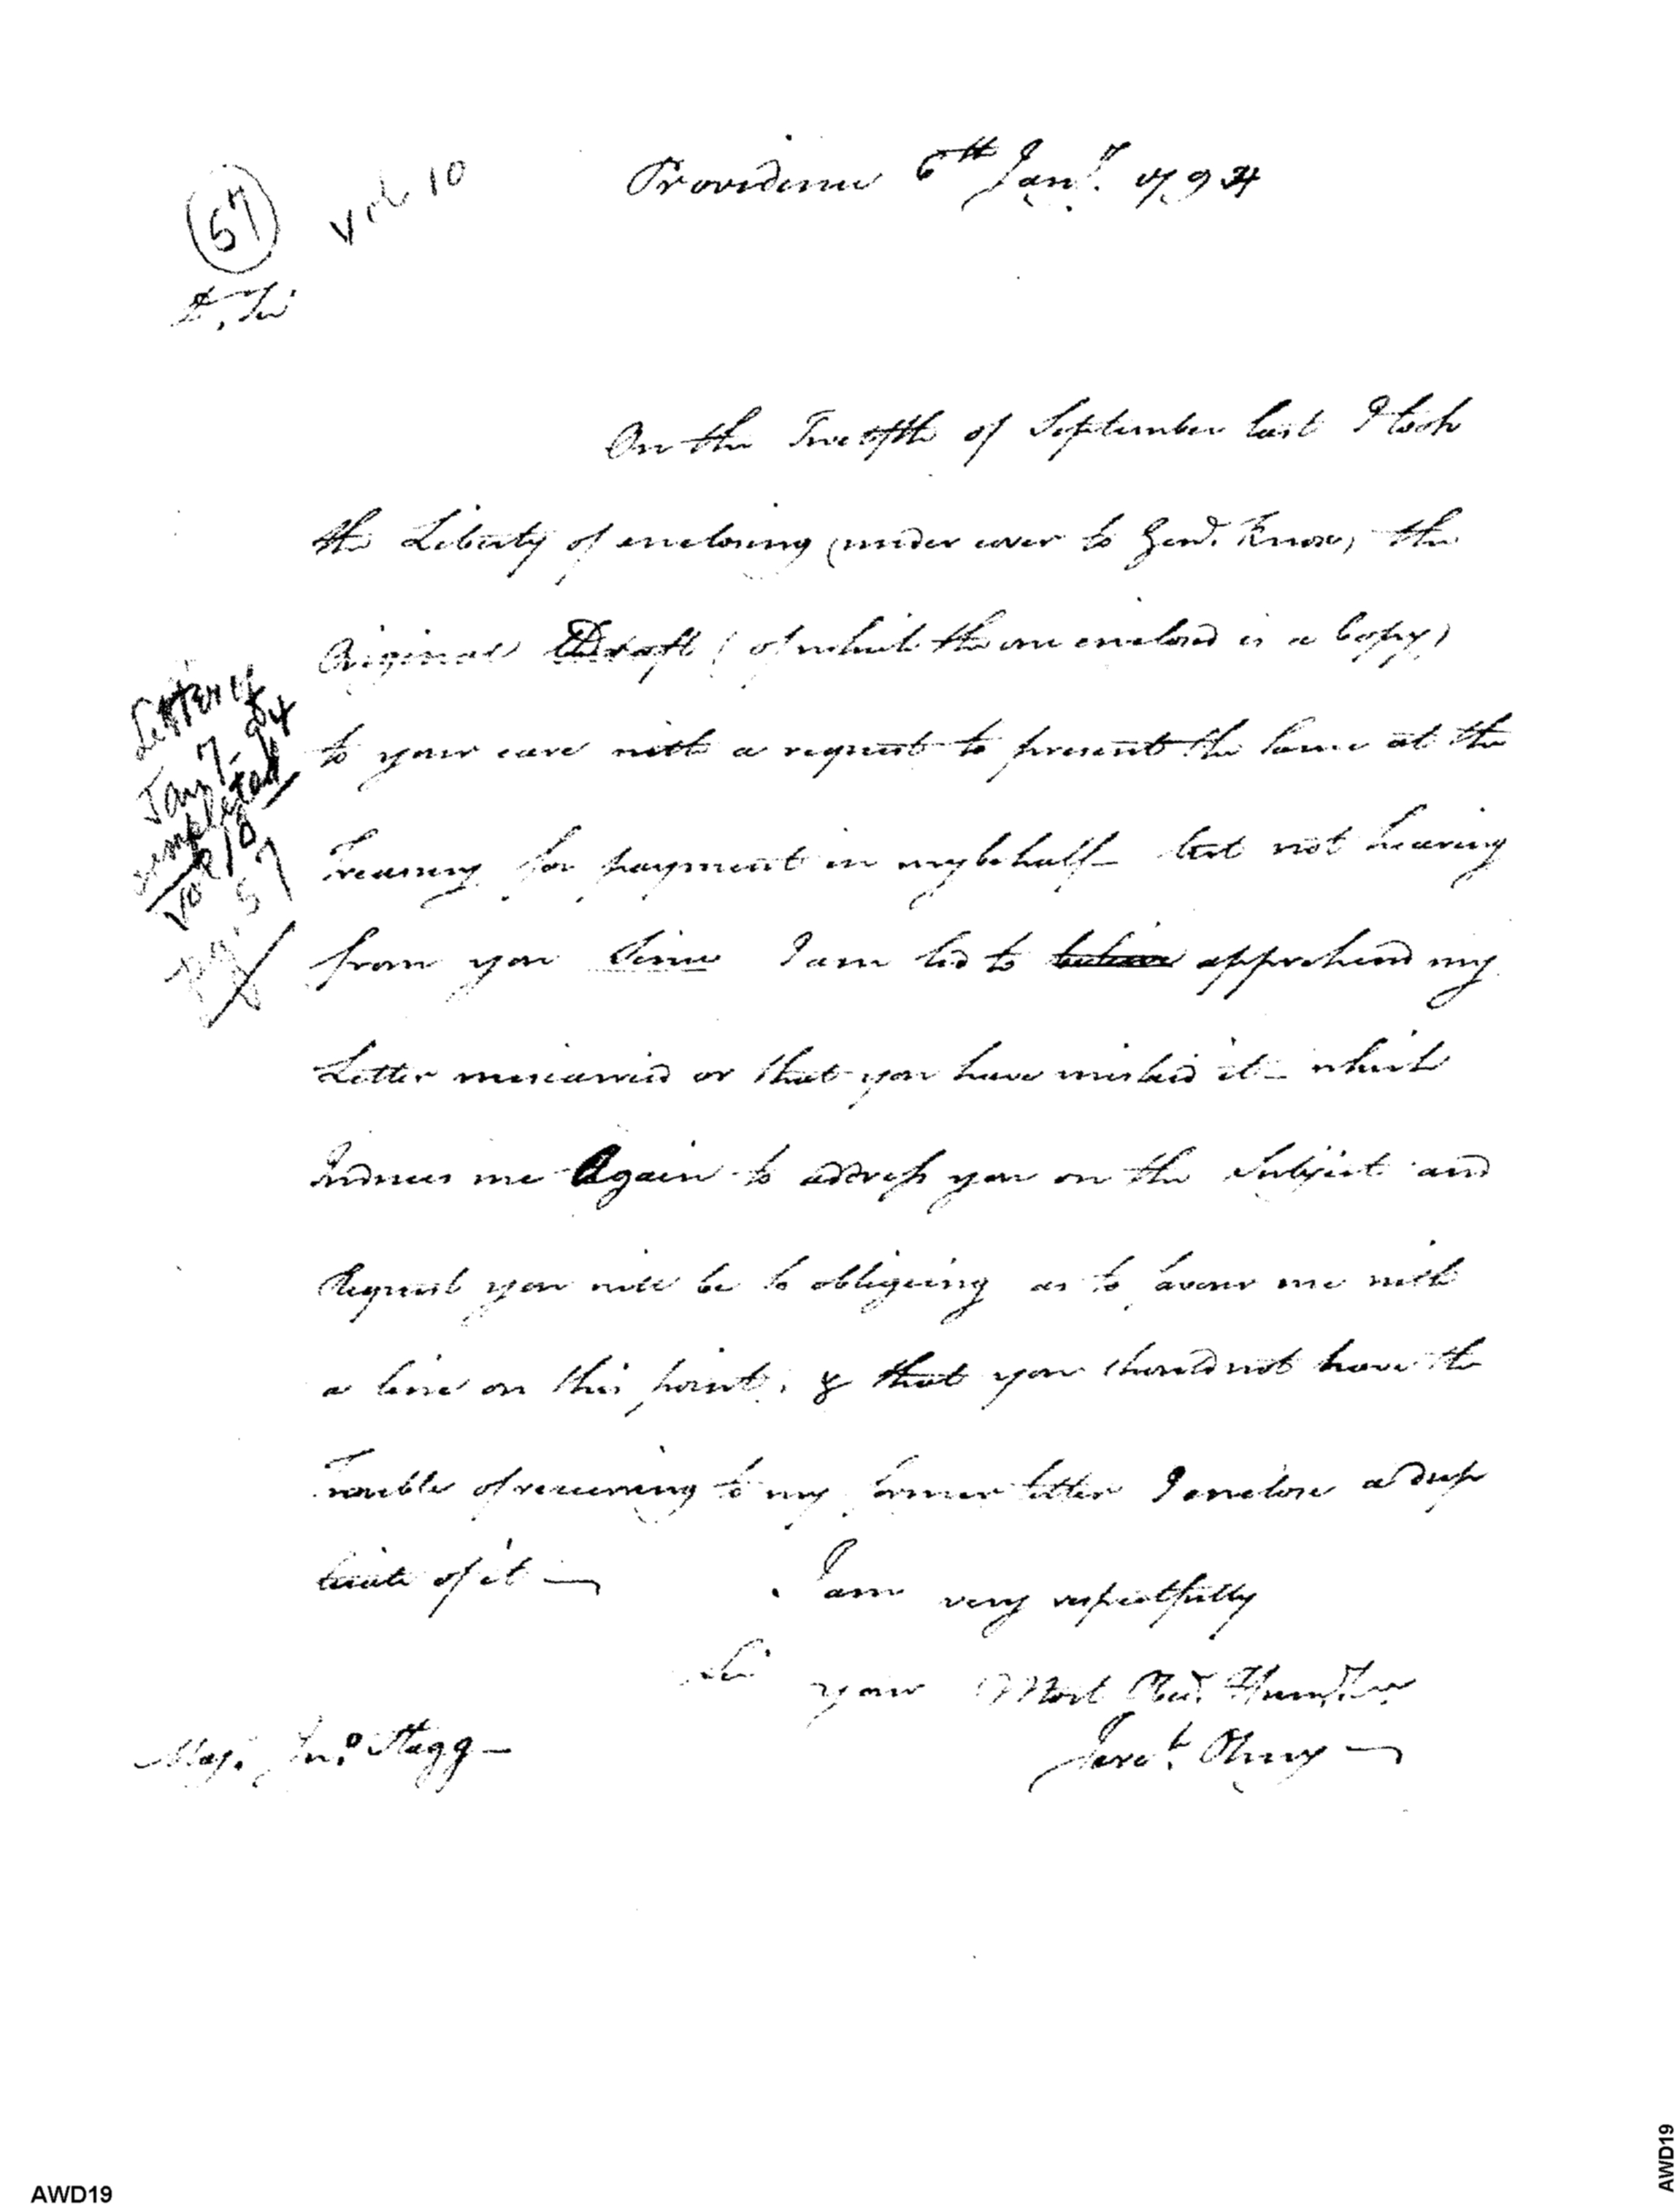 Providence 6th Jany. 1794
57
Vol 10
D. Sir
On the Twelfth of September last I took
the Liberty of enclosing (under cover to Genl. Knox) the
Original Draft (of which the one enclosed is a Copy)
to your care with a request to present the same at the
Treasury for payment in my behalf - but not hearing
from you Since I am led to believe apprehend my
Letter miscarried or that you have mislaid it - which
Induces me Again to address you on the Subject and
Request you will be so obligeing as to favour me with
a line on this point, & that you should not have the
Trouble of recurring to my former letter I enclose a dup
licate of it —
I am very respectfully
Sir
your Most Obed. Humb. Ser
Jereh. Olney
Maj. Jno. Stagg
Letter of
Jan 7-94
completed
Vol 10
pg. 57
AWD19
AWD19